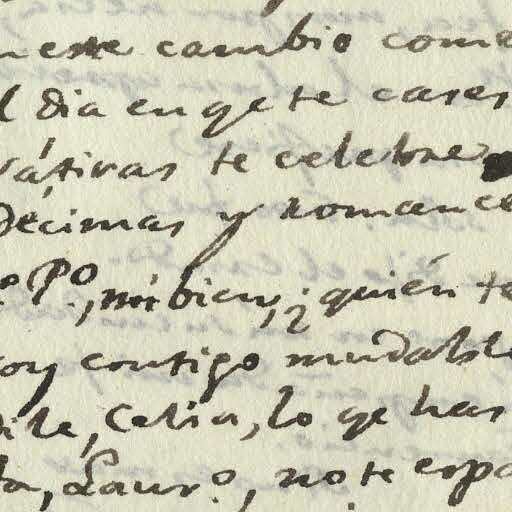 este cambio coma
l dia en qe te cases
rátivas te celebre
Décimas y romance
Po, mi bien, ¿quién te
oy contigo mudable
dile, Celia, lo qe has
ta, Lauro, no te espa